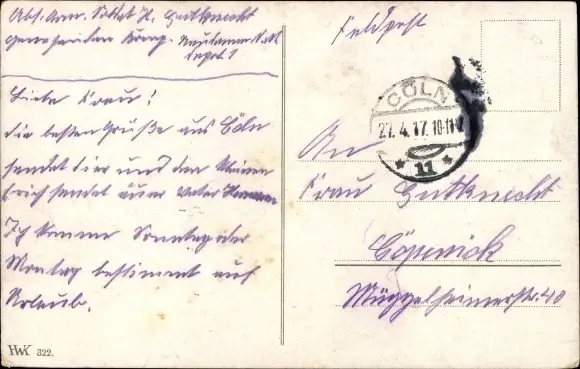 Abs. Arm. Soldat H. Gutknecht
Genesenden Komp.
Depot 1
Liebe Frau!
die besten Grüße aus Cöln
sendet dir und den Kleinen
Erich sendet euer Vater
Ich komme Sonntag oder
Montag bestimmt auf
Urlaub.
HWK 322.
Feldpost
CÖLN
27.4.17.10-11V
* 11 *
An
Frau Gutknecht
Cöpenick
Müggelheimerstr. 40